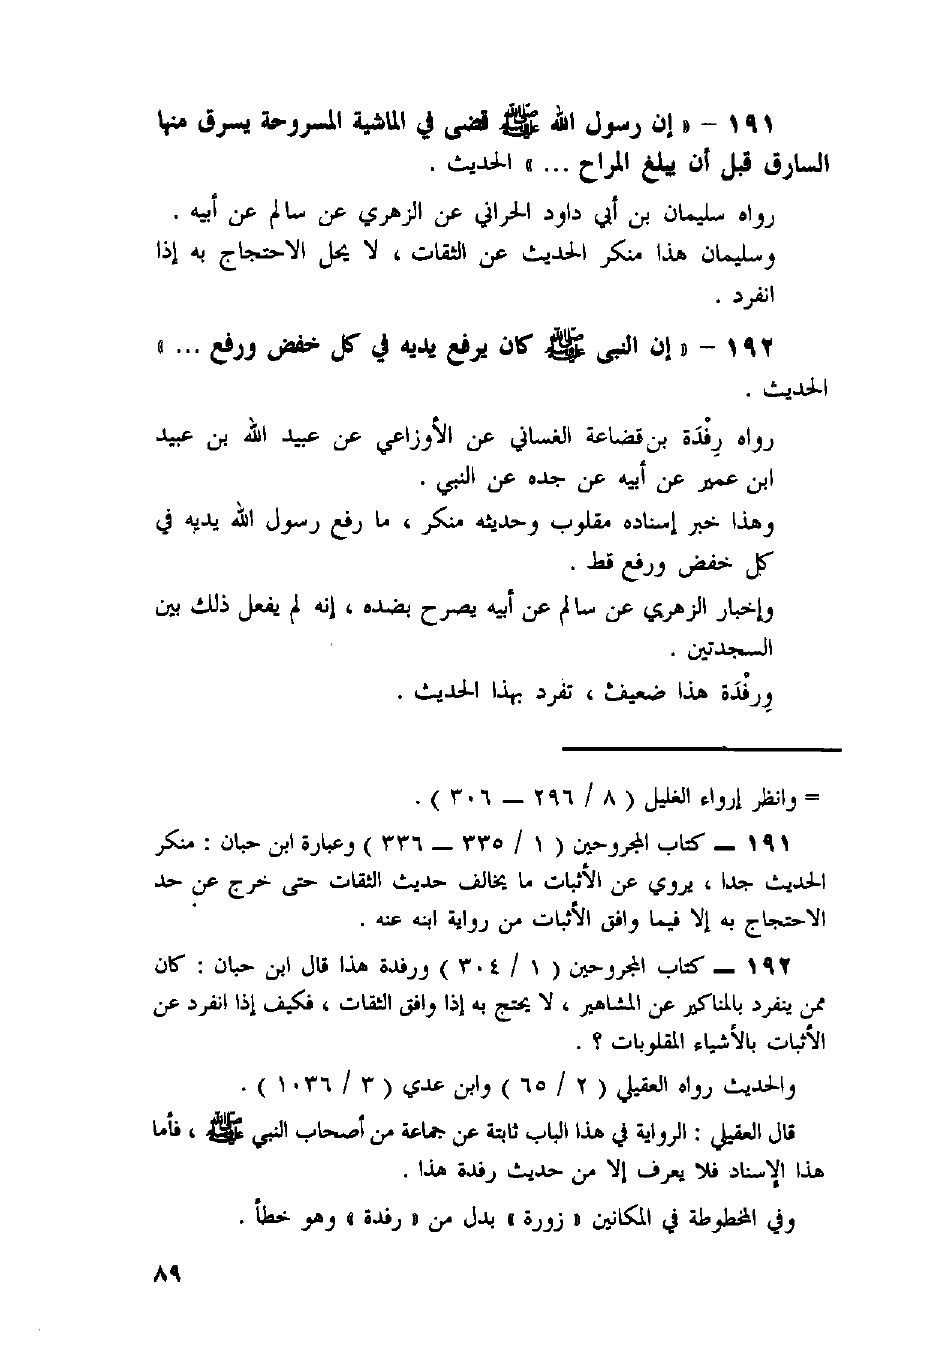 ١٩١ - « إن رسول الله ﷺ قضى في الماشية المسروحة يسرق منها
السارق قبل أن يبلغ المراح ... » الحديث .
رواه سليمان بن أبي داود الحراني عن الزهري عن سالم عن أبيه .
وسليمان هذا منكر الحديث عن الثقات ، لا يحل الاحتجاج به إذا
انفرد .
١٩٢ - « إن النبى ﷺ كان يرفع يديه في كل خفض ورفع ... »
الحديث .
رواه رِفْدَة بن قضاعة الغساني عن الأوزاعي عن عبيد الله بن عبيد
ابن عمير عن أبيه عن جده عن النبي .
وهذا خبر إسناده مقلوب وحديثه منكر ، ما رفع رسول الله يديه في
كل خفض ورفع قط .
وإخبار الزهري عن سالم عن أبيه يصرح بضده ، إنه لم يفعل ذلك بين
السجدتين .
ورِفْدَة هذا ضعيف ، تفرد بهذا الحديث .
= وانظر إرواء الغليل ( ٨ / ٢٩٦ – ٣٠٦ ) .
١٩١ – كتاب المجروحين ( ١ / ٣٣٥ – ٣٣٦ ) وعبارة ابن حبان : منكر
الحديث جدا ، يروي عن الأثبات ما يخالف حديث الثقات حتى خرج عن حد
الاحتجاج به إلا فيما وافق الأثبات من رواية ابنه عنه .
١٩٢ – كتاب المجروحين ( ١ / ٣٠٤ ) ورفدة هذا قال ابن حبان : كان
ممن ينفرد بالمناكير عن المشاهير ، لا يحتج به إذا وافق الثقات ، فكيف إذا انفرد عن
الأثبات بالأشياء المقلوبات ؟ .
والحديث رواه العقيلي ( ٢ / ٦٥ ) وابن عدي ( ٣ / ١٠٣٦ ) .
قال العقيلي : الرواية في هذا الباب ثابتة عن جماعة من أصحاب النبي ﷺ ، فأما
هذا الإسناد فلا يعرف إلا من حديث رفدة هذا .
وفي المخطوطة في المكانين « زورة » بدل من « رفدة » وهو خطأ .
٨٩